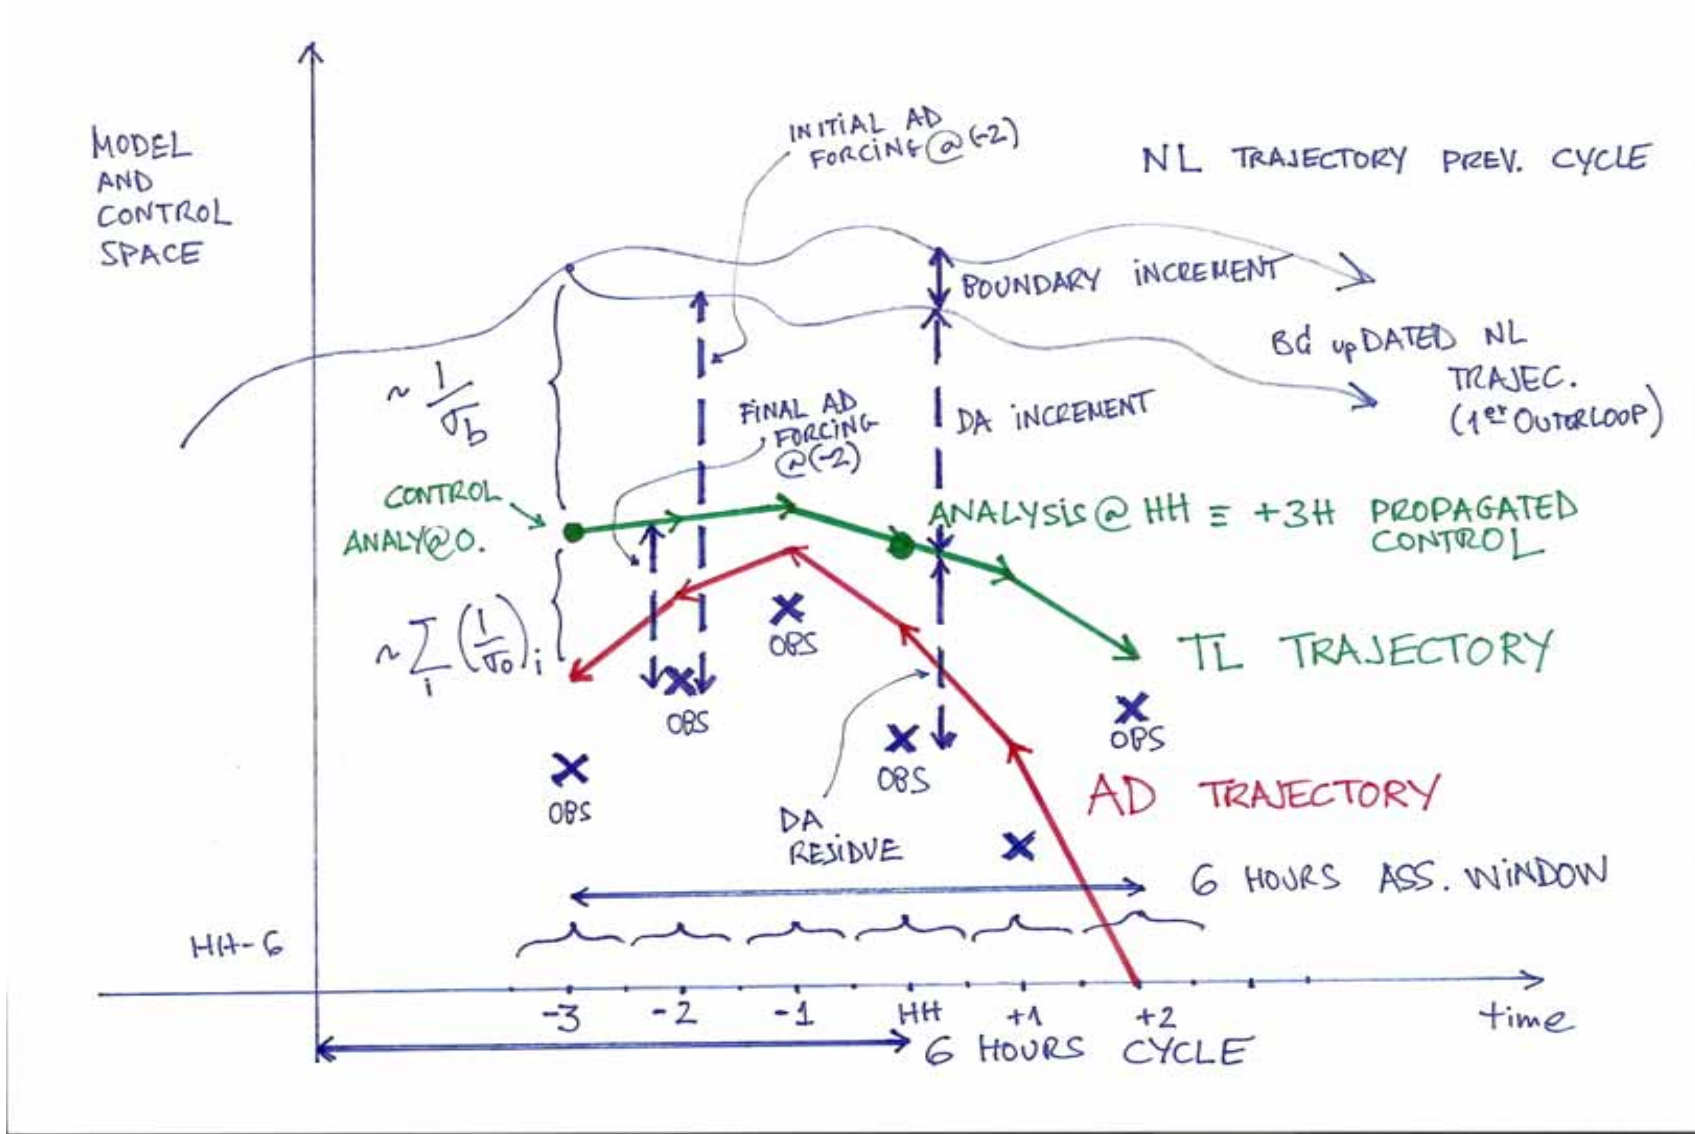 MODEL
AND
CONTROL
SPACE
INITIAL AD
FORCING@(-2)
NL TRAJECTORY PREV. CYCLE
BOUNDARY INCREMENT
BG upDATED NL
TRAJEC.
(1er OUTERLOOP)
~ 1/σb
FINAL AD
FORCING
@(-2)
DA INCREMENT
CONTROL
ANALY@0.
ANALYSIS@ HH ≡ +3H PROPAGATED
CONTROL
~ Σi (1/σo)i
OBS
OBS
OBS
OBS
OBS
TL TRAJECTORY
AD TRAJECTORY
DA
RESIDUE
6 HOURS ASS. WINDOW
HH-6
-3 -2 -1 HH +1 +2 time
6 HOURS CYCLE